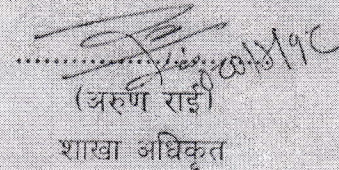 (अरुण राई)
शाखा अधिकृत